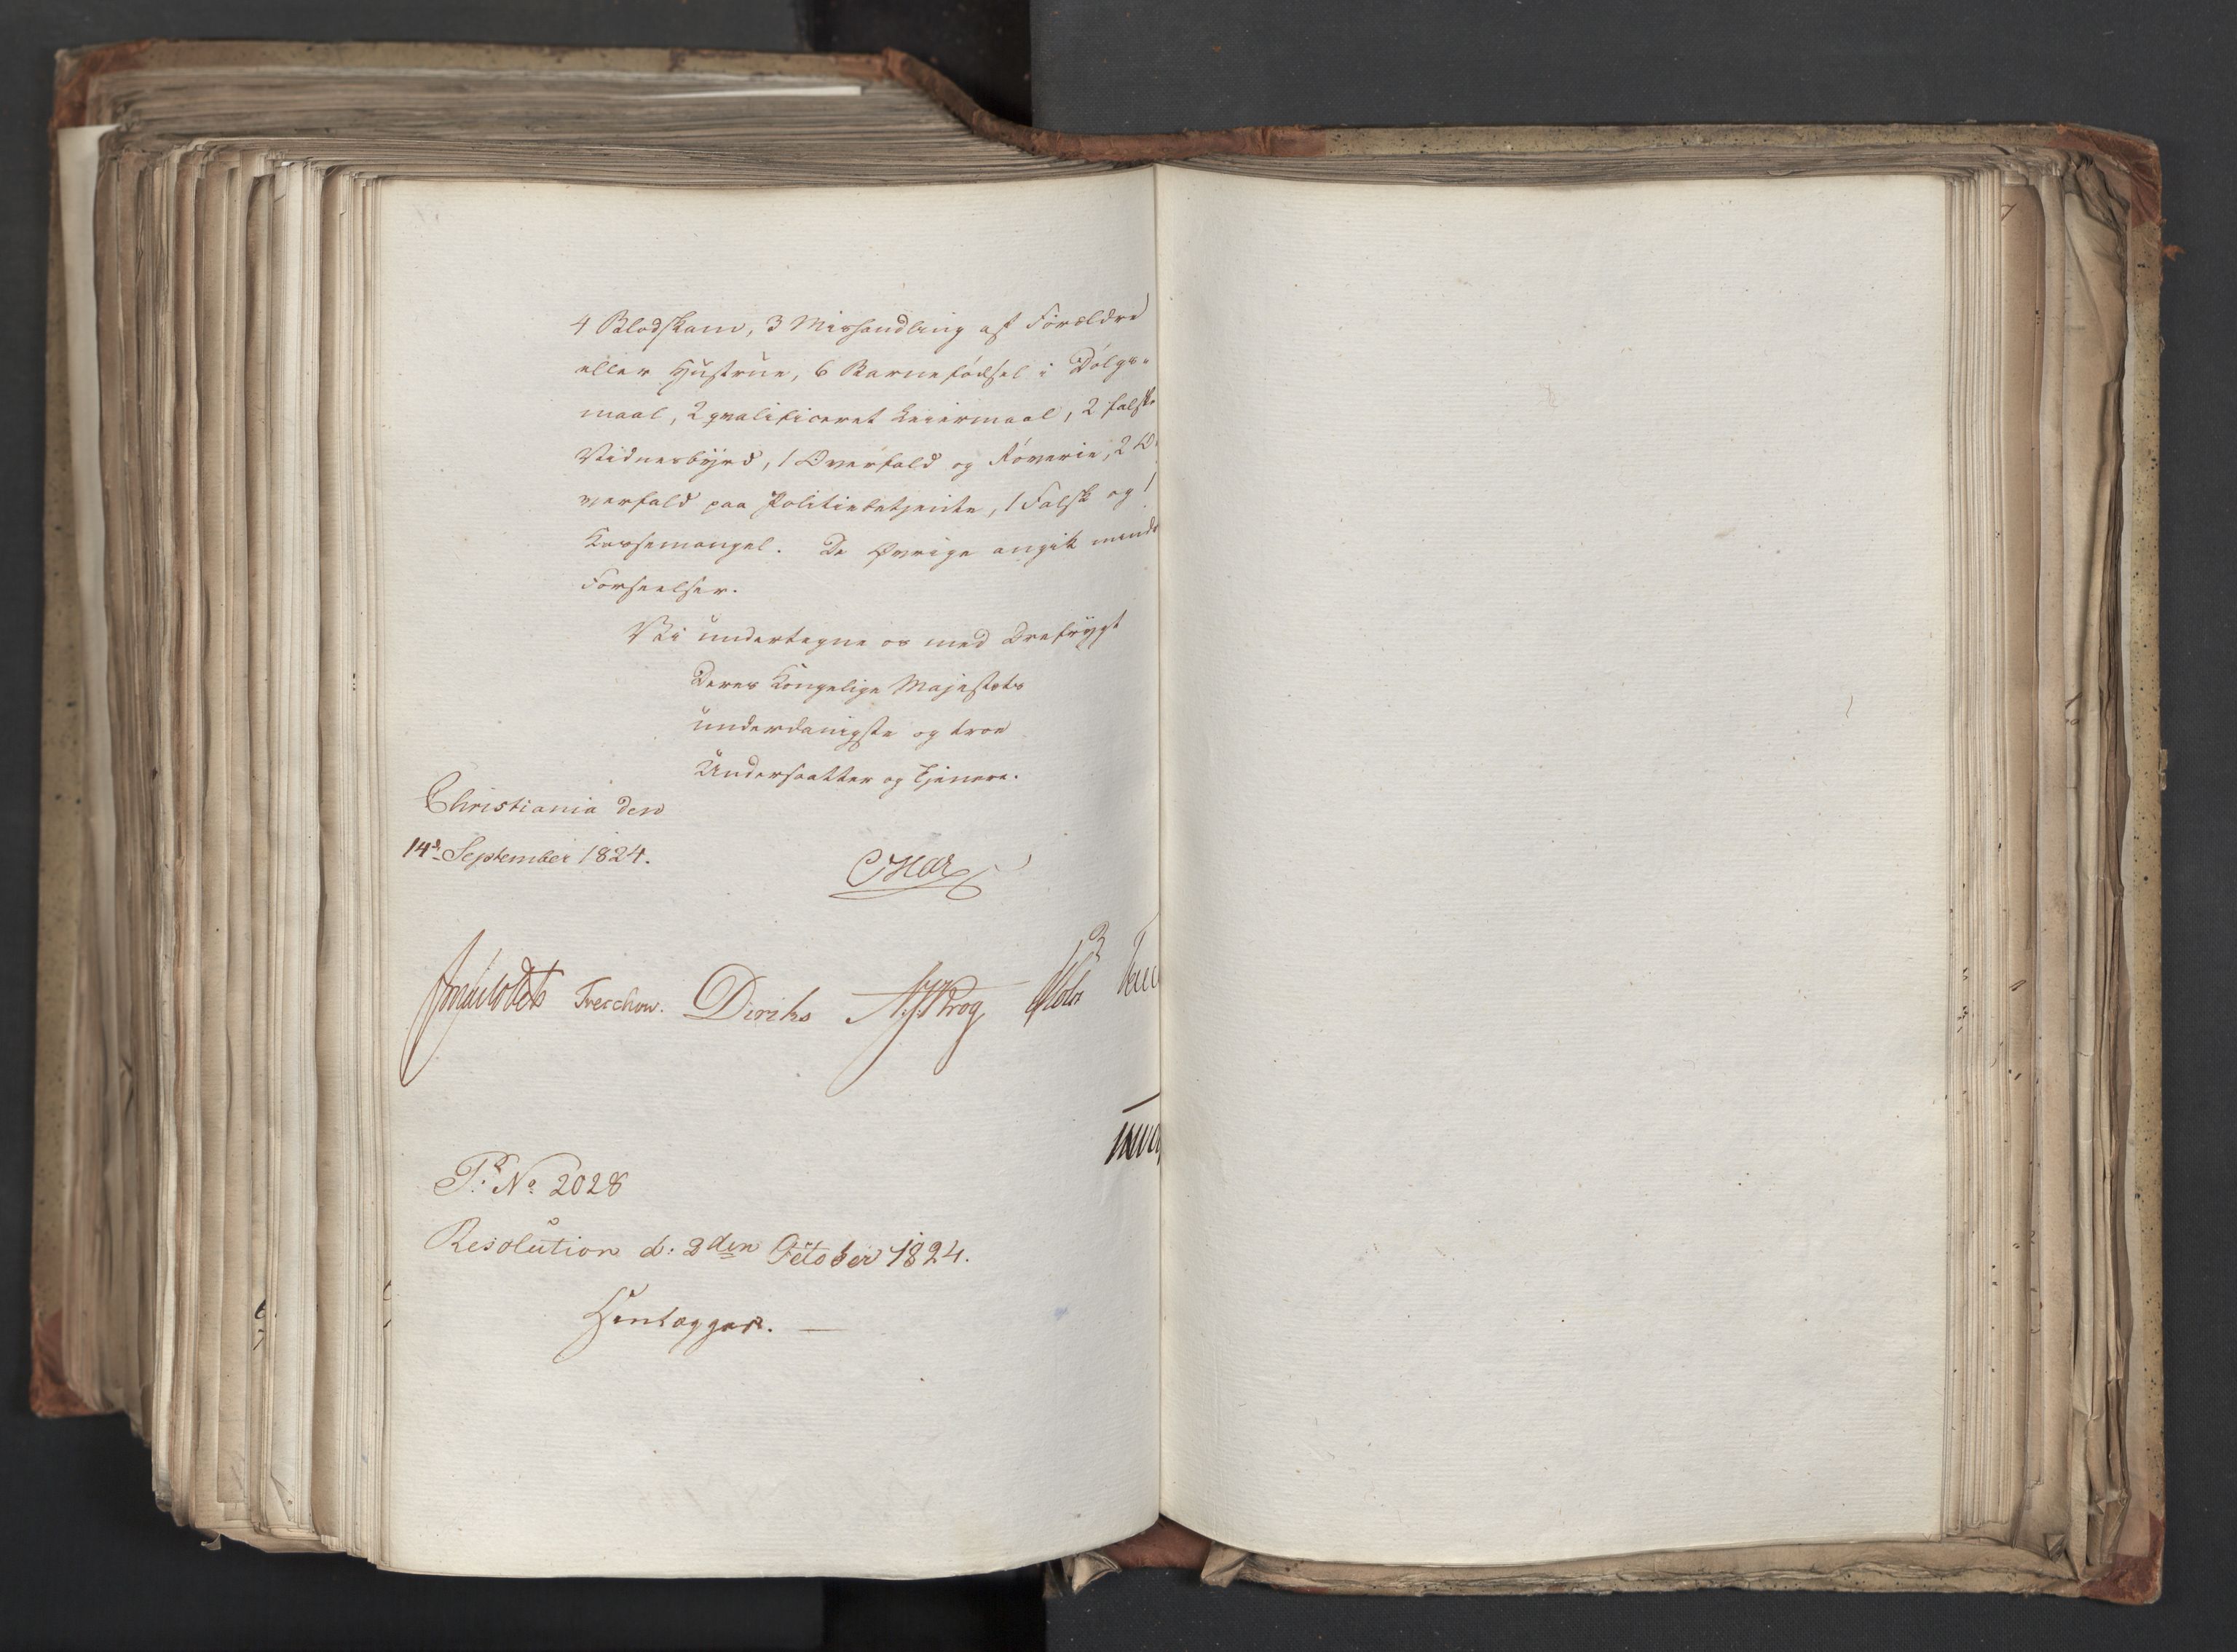 4 Blodskam, 3 Mishandling af Forældre
eller Hustrue, 6 Barnefødsel i Dølgs-
maal, 2 qvalificeret Leiermaal, 2 falske
Vidnesbyrd, 1 Overfald og Røverie, 2 O-
verfald paa Politiebetjente, 1 Falsk og 1
Kassemangel. De Øvrige angik mindre
Forseelser.
Vi undertegne os med Ærefrygt
Deres Kongelige Majestæts
underdanigste og troe
Undersaatter og Tjenere.
Christiania den
14d September 1824.
Treschow. Diriks Krog
P: No 2028
Resolution d: 2den October 1824.
Henlægges.